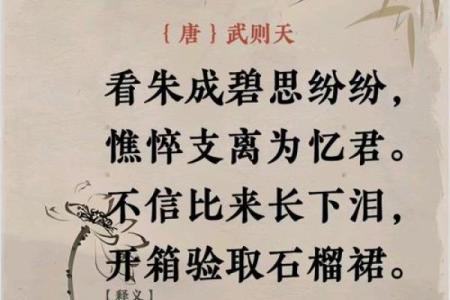 {唐}武则天
看朱成碧思纷纷，
憔悴支离为忆君。
不信比来长下泪，
开箱验取石榴裙。
[释义]